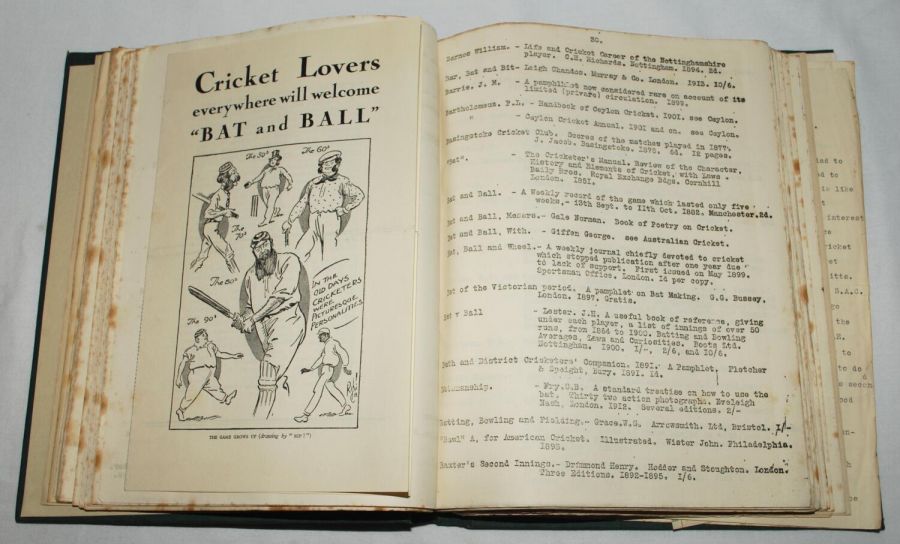 Cricket Lovers
everywhere will welcome
"BAT and BALL"
The 50s
The 60s
The 70s
The 80s
The 90s
IN THE
OLD DAYS
CRICKETERS
WERE
PICTURESQUE
PERSONALITIES.
THE GAME GROWS UP (drawing by "RIP")
30.
Barnes William. - Life and Cricket Career of the Nottinghamshire
player. C.H. Richards. Nottingham. 1894. 2d.
Bar, Bat and Bit- Leigh Chandos. Murray & Co. London. 1913. 10/6.
Barrie, J. M. - A pamphlet now considered rare on account of its
limited (private) circulation. 1899.
Bartholomeus. P.L. - Handbook of Ceylon Cricket. 1901. see Ceylon.
" - Ceylon Cricket Annual. 1901 and on. see Ceylon.
Basingstoke Cricket Club. Scores of the matches played in 1877.
J. Jacob. Basingstoke. 1878. 6d. 12 pages.
"Bat". - The Cricketer's Manual. Review of the Character,
History and Elements of Cricket, with Laws.
Baily Bros. Royal Exchange Bdgs. Cornhill
London. 1851.
Bat and Ball. - A Weekly record of the game which lasted only five
weeks,- 13th Sept. to 11th Oct. 1882. Manchester. 2d.
Bat and Ball, Messrs.- Gale Norman. Book of Poetry on Cricket.
Bat and Ball, With. - Giffen George. see Australian Cricket.
Bat, Ball and Wheel.- A weekly journal chiefly devoted to cricket
which stopped publication after one year due
to lack of support. First issued on May 1899.
Sportsman Office. London. 1d per copy.
Bat of the Victorian period. A pamphlet on Bat Making. G.G. Bussey,
London. 1897. Gratis.
Bat v Ball - Lester. J.H. A useful book of reference, giving
under each player, a list of innings of over 50
runs, from 1864 to 1900. Batting and Bowling
Averages, Laws and Curiosities. Boots Ltd.
Nottingham. 1900. 1/-, 2/6, and 10/6.
Bath and District Cricketers' Companion. 1891. A Pamphlet. Fletcher
& Speight, Bury. 1891. 1d.
Batsmanship. - Fry.C.B. A standard treatise on how to use the
bat. Thirty two action photographs. Eveleigh
Nash, London. 1912. Several editions. 2/-
Batting, Bowling and Fielding.- Grace.W.G. Arrowsmith. Ltd, Bristol. 1/-
"Bawl" A, for American Cricket. Illustrated. Wister John. Philadelphia.
1893.
Baxter's Second Innings.- Drummond Henry. Hodder and Stoughton. London.
Three Editions. 1892-1895. 1/6.